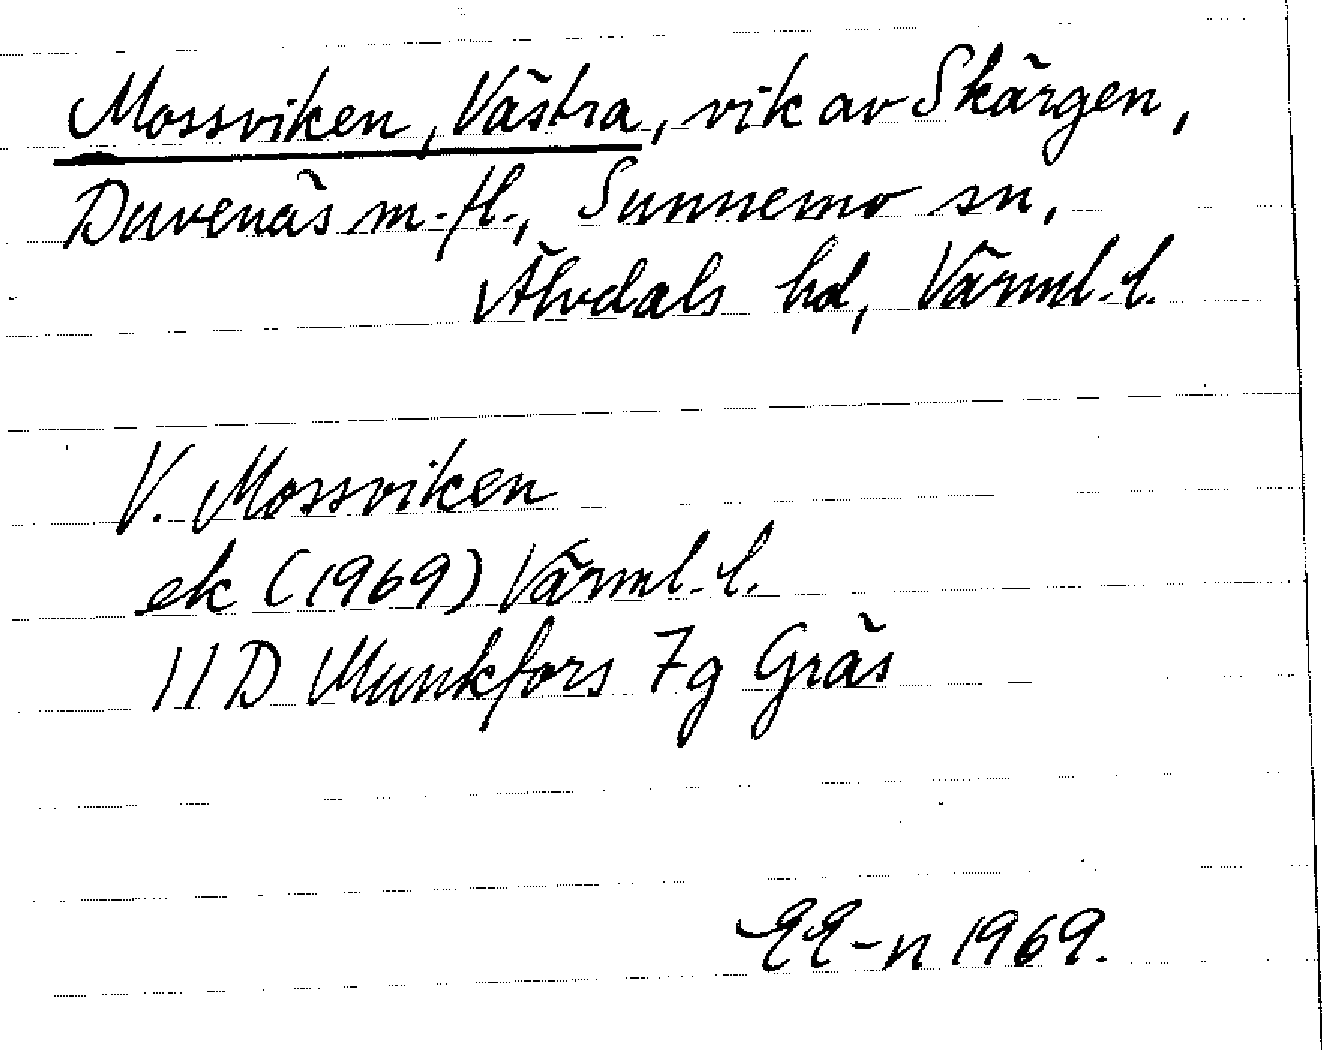 Mossviken, Västra, vik av Skärgen,
Duvenäs m.fl., Sunnemo sn,
Älvdals hd, Värml. l.
V. Mossviken
ek (1969) Värml. l.
11D Munkfors 7g Gräs
EE-n 1969.